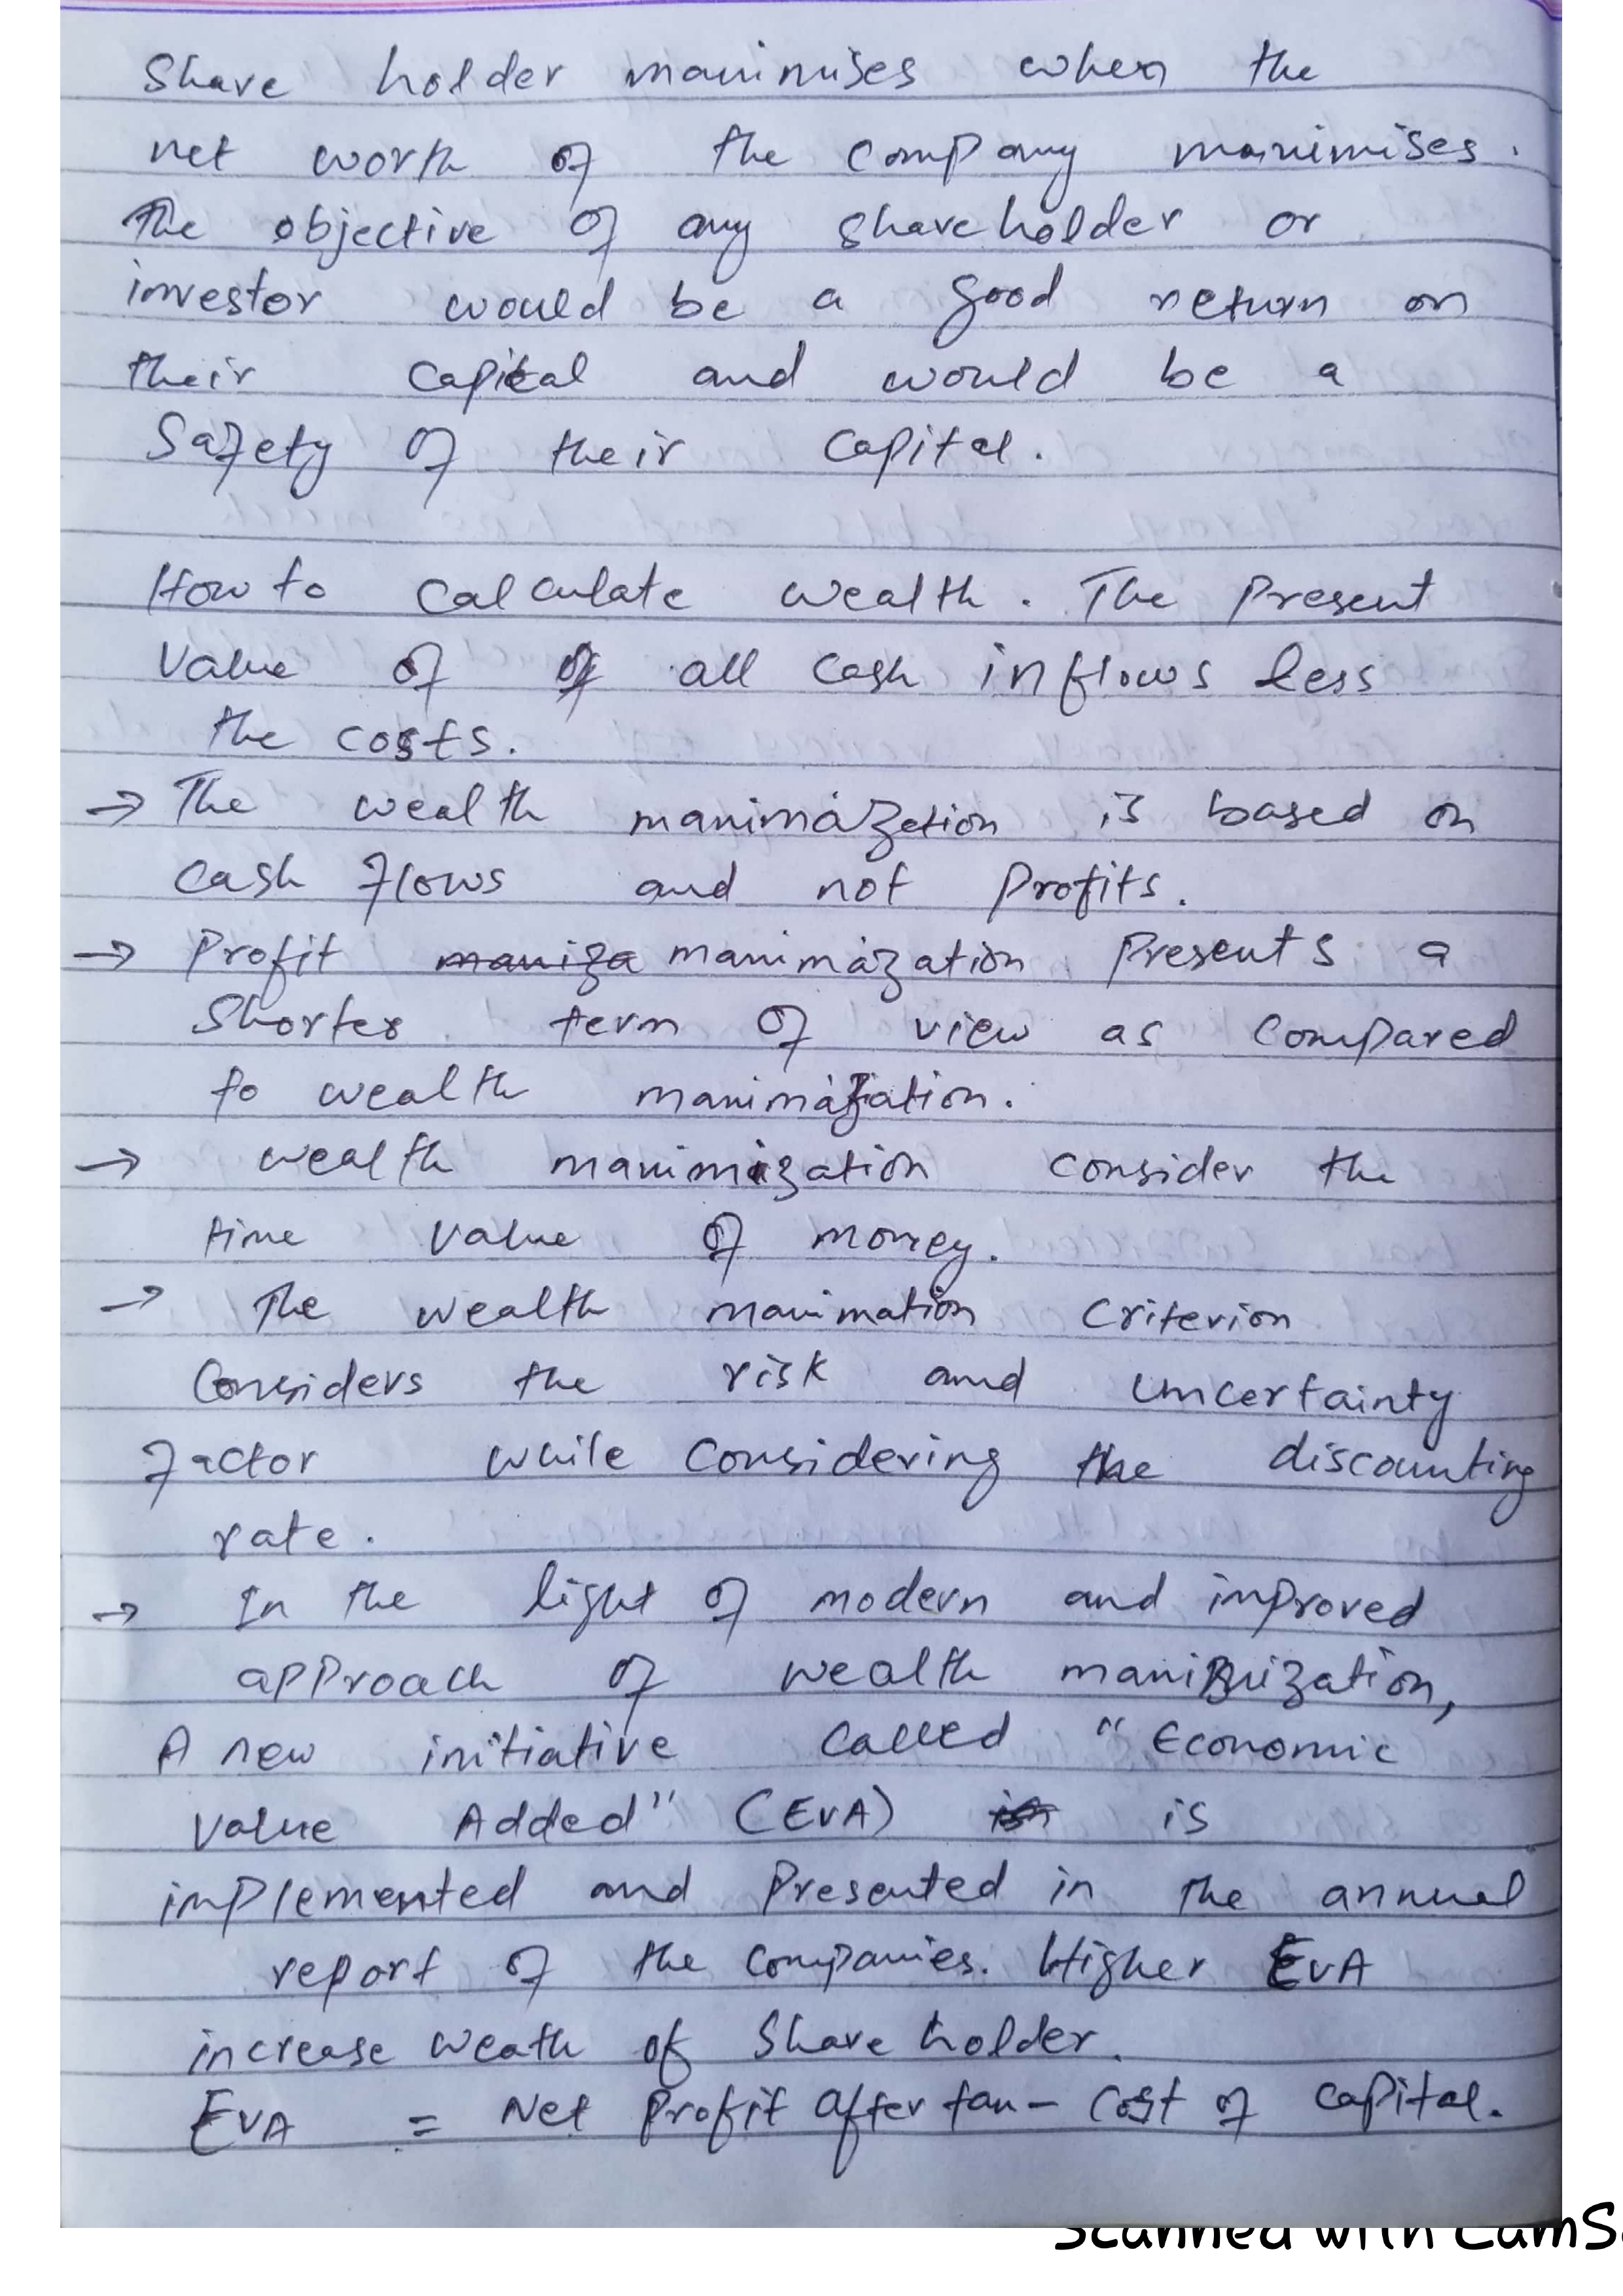 Share holder maximises when the
net worth of the company maximises.
The objective of any shareholder or
investor would be a good return on
their capital and would be a
Safety of their capital.
How to calculate wealth. The Present
Value of of all cash inflows less
the costs.
→ The wealth maximazation is based on
cash flows and not profits.
→ Profit maxiza maximazation Presents a
Shorter term of view as compared
to wealth maximazation.
→ wealth maximization consider the
time value of money.
→ The wealth maximation criterion
Considers the risk and uncertainty
factor while considering the discounting
rate.
→ In the light of modern and improved
approach of wealth maximization,
A new initiative called "Economic
Value Added" (EVA) in is
implemented and Presented in the annual
report of the companies. Higher EVA
increase weath of Share holder.
EVA = Net Profit after tax - Cost of capital.
Scanned with CamS